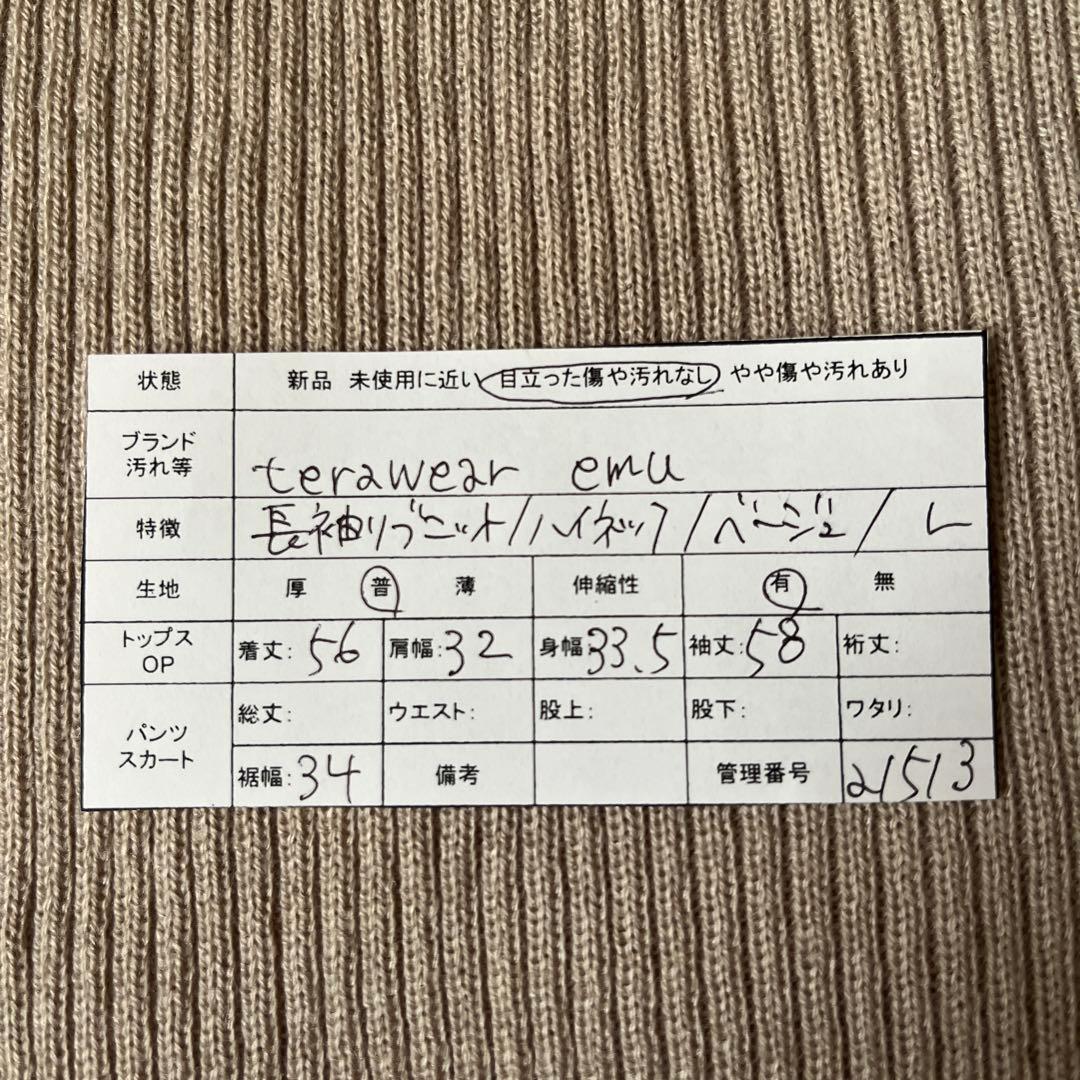 状態 新品 未使用に近い 目立った傷や汚れなし やや傷や汚れあり
ブランド
汚れ等 terawear emu
特徴 長袖リブニット/ハイネック/ベージュ/L
生地 厚 普 薄 伸縮性 有 無
トップス
OP 着丈:56 肩幅:32 身幅:33.5 袖丈:58 裄丈:
パンツ
スカート 総丈: ウエスト: 股上: 股下: ワタリ:
裾幅:34 備考 管理番号 21513